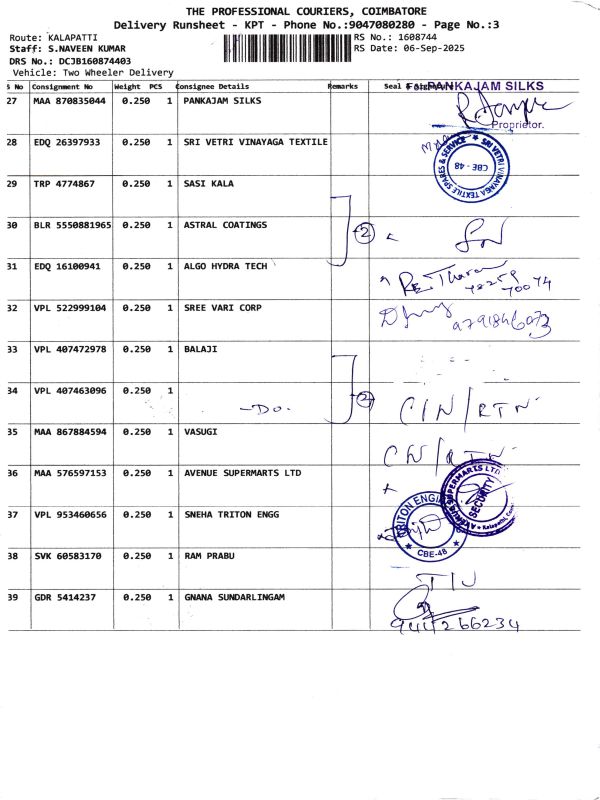 THE PROFESSIONAL COURIERS, COIMBATORE
Delivery Runsheet - KPT - Phone No.:9047080280 - Page No.:3
Route: KALAPATTI
RS No.: 1608744
Staff: S.NAVEEN KUMAR
RS Date: 06-Sep-2025
DRS No.: DCJB160874403
Vehicle: Two Wheeler Delivery
S No Consignment No Weight PCS Consignee Details Remarks Seal &
For PANKAJAM SILKS
27 MAA 870835044 0.250 1 PANKAJAM SILKS
Proprietor.
28 EDQ 26397933 0.250 1 SRI VETRI VINAYAGA TEXTILE
SRI VETRI VINAYAGA TEXTILE SPARES & SERVICE
CBE - 48
29 TRP 4774867 0.250 1 SASI KALA
30 BLR 5550881965 0.250 1 ASTRAL COATINGS 2
31 EDQ 16100941 0.250 1 ALGO HYDRA TECH
70074
32 VPL 522999104 0.250 1 SREE VARI CORP
33 VPL 407472978 0.250 1 BALAJI
34 VPL 407463096 0.250 1 -DO- 2 CIN/RTN
35 MAA 867884594 0.250 1 VASUGI
36 MAA 576597153 0.250 1 AVENUE SUPERMARTS LTD
SECURITY
37 VPL 953460656 0.250 1 SNEHA TRITON ENGG
CBE-48
38 SVK 60583170 0.250 1 RAM PRABU
39 GDR 5414237 0.250 1 GNANA SUNDARLINGAM